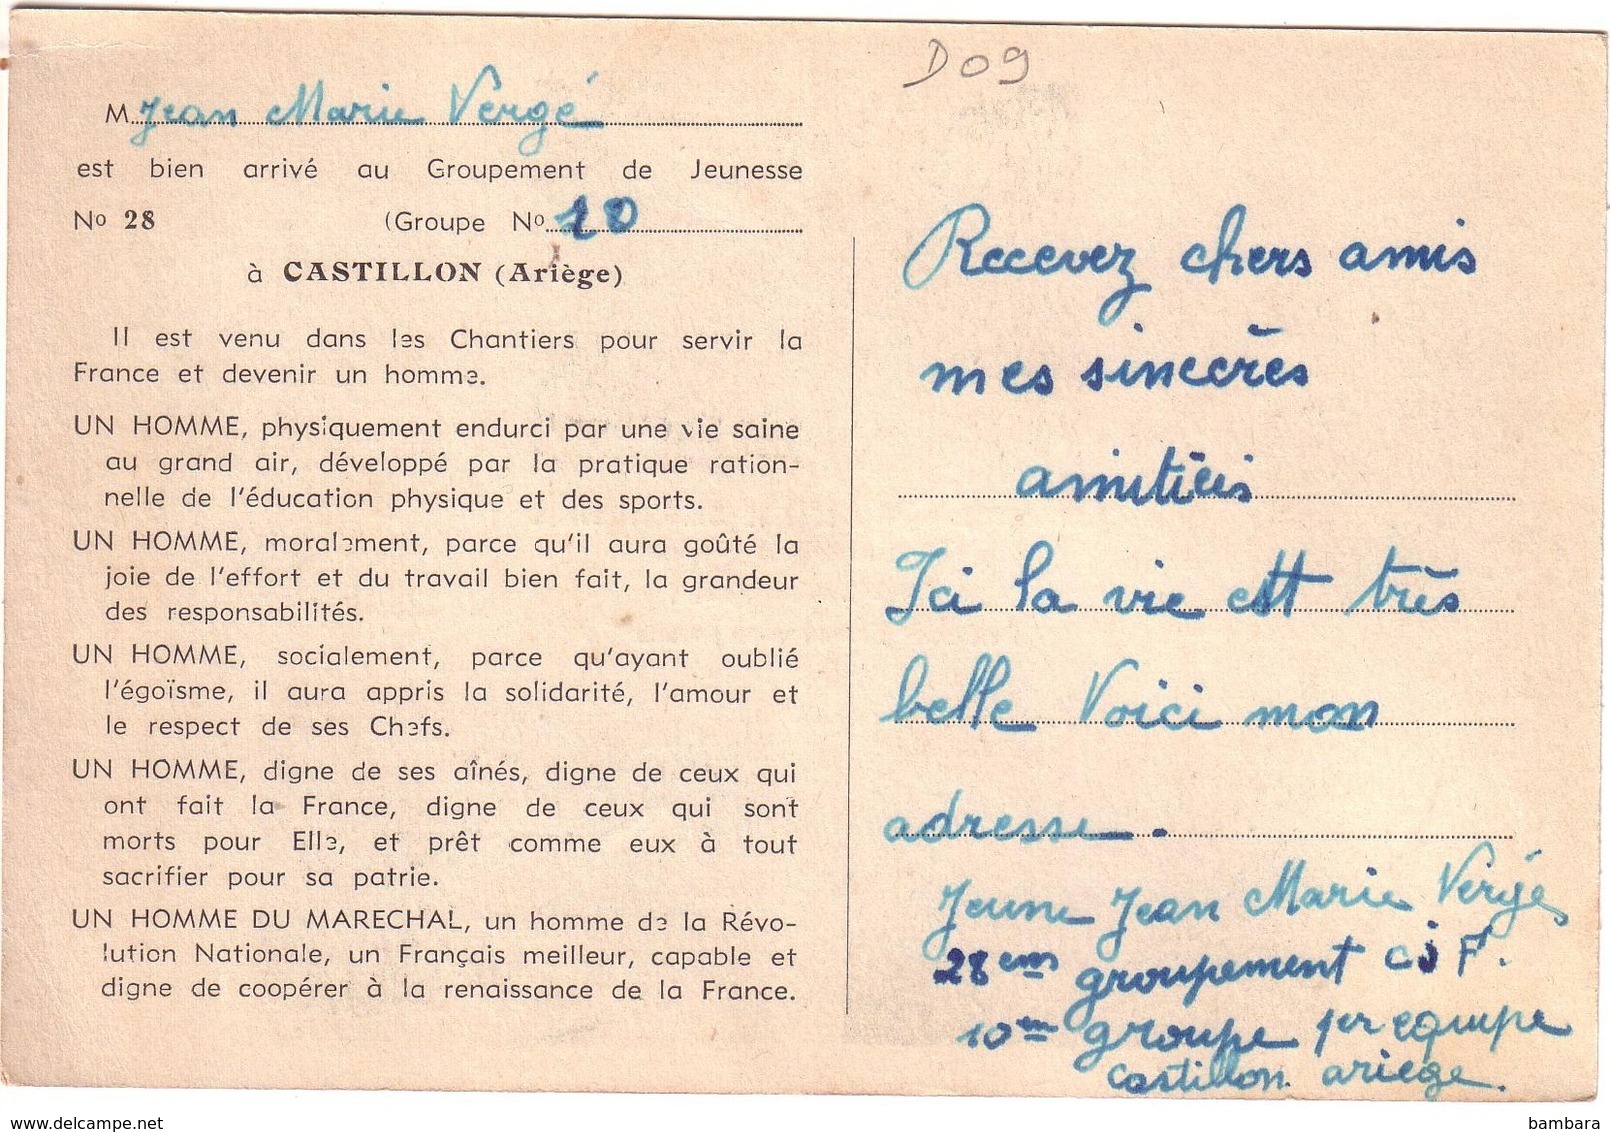 D 09
M Jean Marie Vergé
est bien arrivé au Groupement de Jeunesse
No 28 (Groupe No 10
à CASTILLON (Ariège)
Il est venu dans les Chantiers pour servir la
France et devenir un homme.
UN HOMME, physiquement endurci par une vie saine
au grand air, développé par la pratique ration-
nelle de l'éducation physique et des sports.
UN HOMME, moralement, parce qu'il aura goûté la
joie de l'effort et du travail bien fait, la grandeur
des responsabilités.
UN HOMME, socialement, parce qu'ayant oublié
l'égoïsme, il aura appris la solidarité, l'amour et
le respect de ses Chefs.
UN HOMME, digne de ses aînés, digne de ceux qui
ont fait la France, digne de ceux qui sont
morts pour Elle, et prêt comme eux à tout
sacrifier pour sa patrie.
UN HOMME DU MARECHAL, un homme de la Révo-
lution Nationale, un Français meilleur, capable et
digne de coopérer à la renaissance de la France.
Recevez chers amis
mes sincères
amitiéis
Ici la vie est très
belle Voici mon
adresse.
Jeune Jean Marie Vergés
28 em groupement CJF.
10 em groupe 1er equipe
Castillon. ariege.
bambara